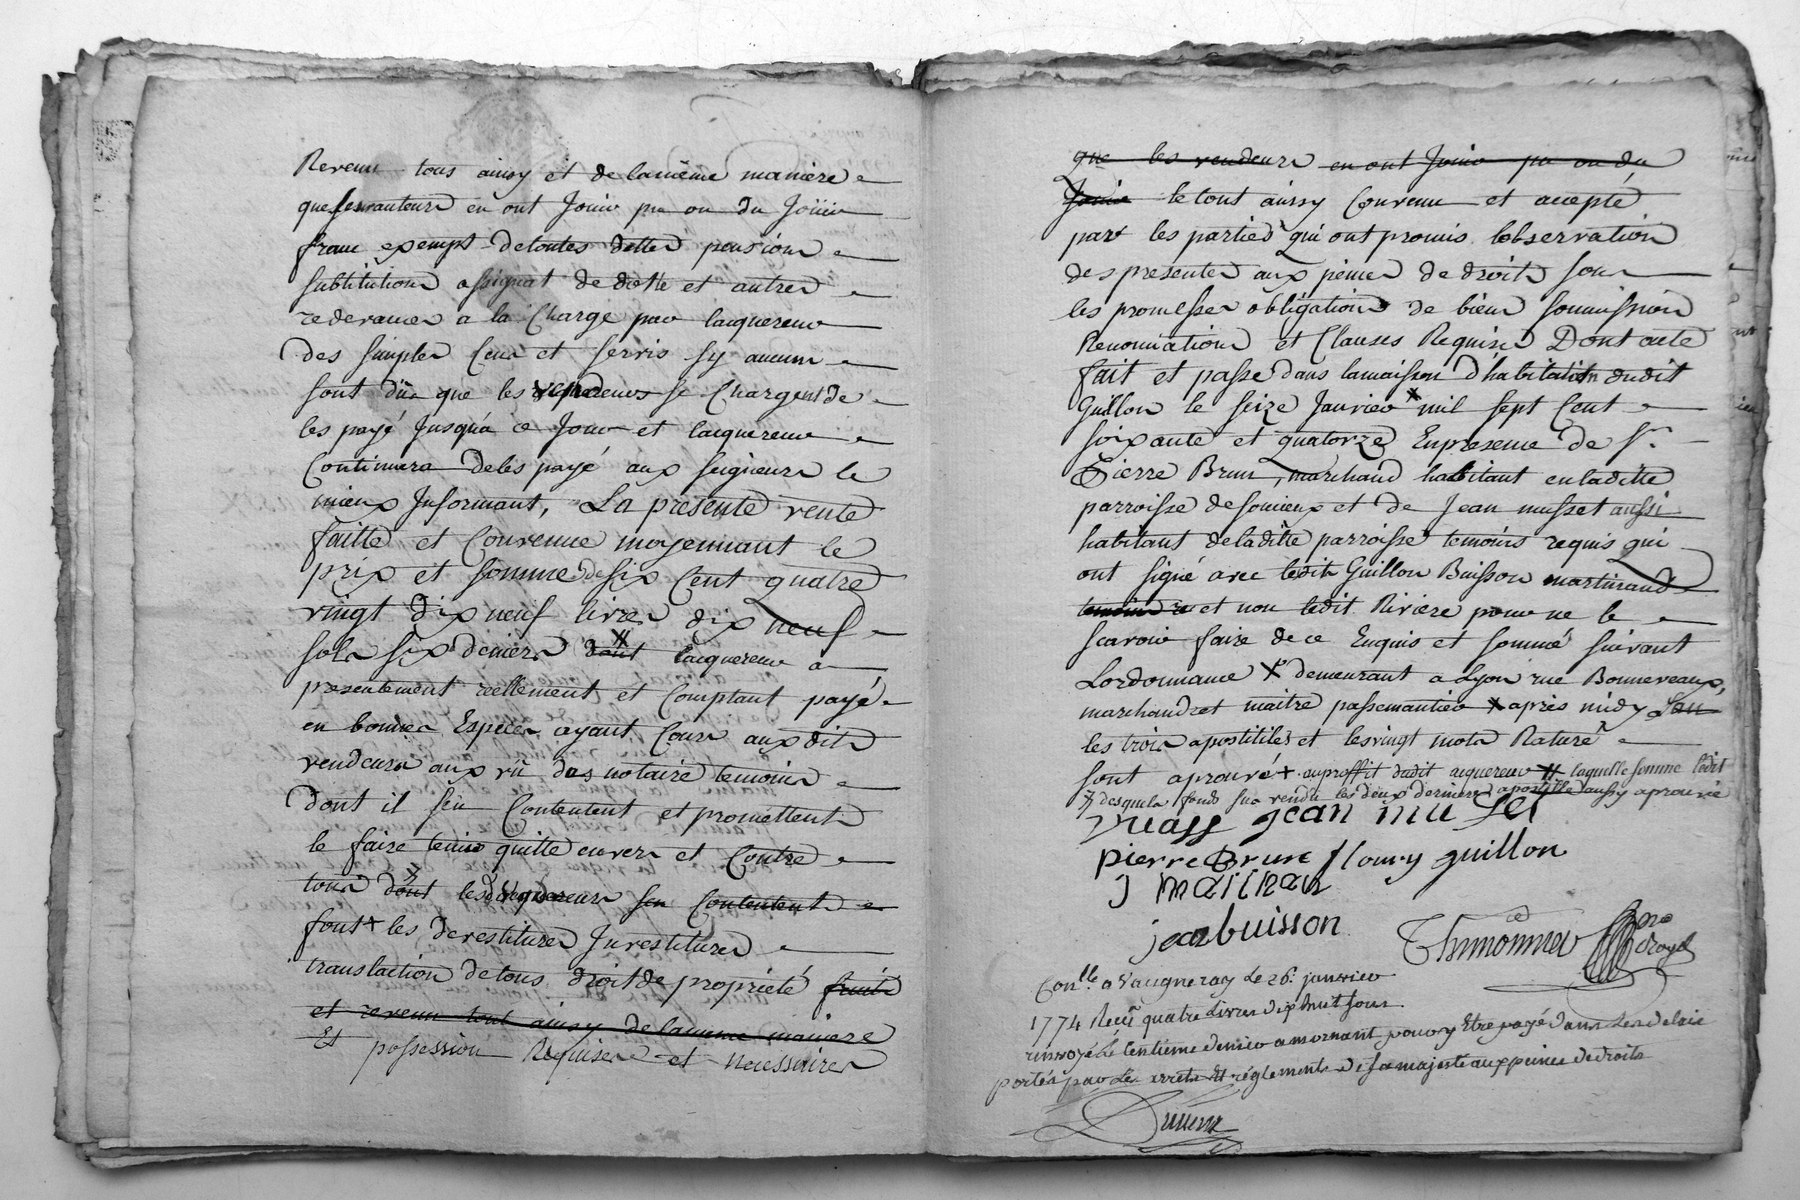 Revenu tous ainsy et de la même maniere
que les vendeurs en ont Jouir pu ou du Joüir
franc exempt de toutes dettes pensions
substitutions assignat de dotte et autres
redevances a la Charge par lacquereur
des simples Cens et servis sy aucuns
sont dûs que les vendeurs se Chargent de
les payé Jusqu'á ce Jour et lacquereur
Continuera de les payé aux seigneurs le
mieux Informant, La presente vente
faitte et Convenue moyennant le
prix et somme de six Cent quatre
vingt dix neuf livres dix neuf
sols six deniers dont lacquereur a
presentement reellement et Comptant payé
en bonnes Especes ayant Cours auxdits
vendeurs aux vû des notaire temoins
dont il sen Contentent et promettent
le faire tenir quitte envers et Contre
tous dont les acquereurs sen Contentent
font + les devestitures Investitures
translaction de tous droit de propriété fruits
et revenu tout ainsy de la meme maniere
Et possession Requises et necessaires
que les vendeurs en ont Jouir pu ou du
Jouir le tout ainsy Convenu et accepté
par les parties qui ont promis lobservation
des presentes aux peines de droits sous
les promesses obligations de biens soumission
Renonciations et Clauses Requises Dont acte
fait et passe dans la maison d'habitation dudit
Guillon le seize Janvier x mil sept Cent
soixante et quatorze En presence de Sr
Pierre Brun, marchand habitant en laditte
parroisse de soucieux et de Jean musset aussi
habitant de laditte parroisse temoins requis qui
ont signé avec ledit Guillon Buisson martinand
temoin re et non ledit Riviere pour ne le
scavoir faire de ce Enquis et sommé suivant
Lordonnance x demeurant a Lyon rue Bonneveaux,
marchand et maitre passementier x après midy Lou
les trois apostilles et les vingt mots Raturé
sont aprouvé + au proffit dudit acquereur # laquelle somme ledit
desquels fonds sus vendu les deux dernieres apostille aussy aprouvé
jean musset
pierre Brun floury guillon
jean buisson
Thimonnier no Royal
Conlle a Vaugneray Le 26e janvier
1774 Recû quatre Livres dix huit sous
renvoyé Le Centieme denier a mornant pour y Etre payé dans Les delais
portés par Les arrets Et réglements de sa majesté aux peines de droits